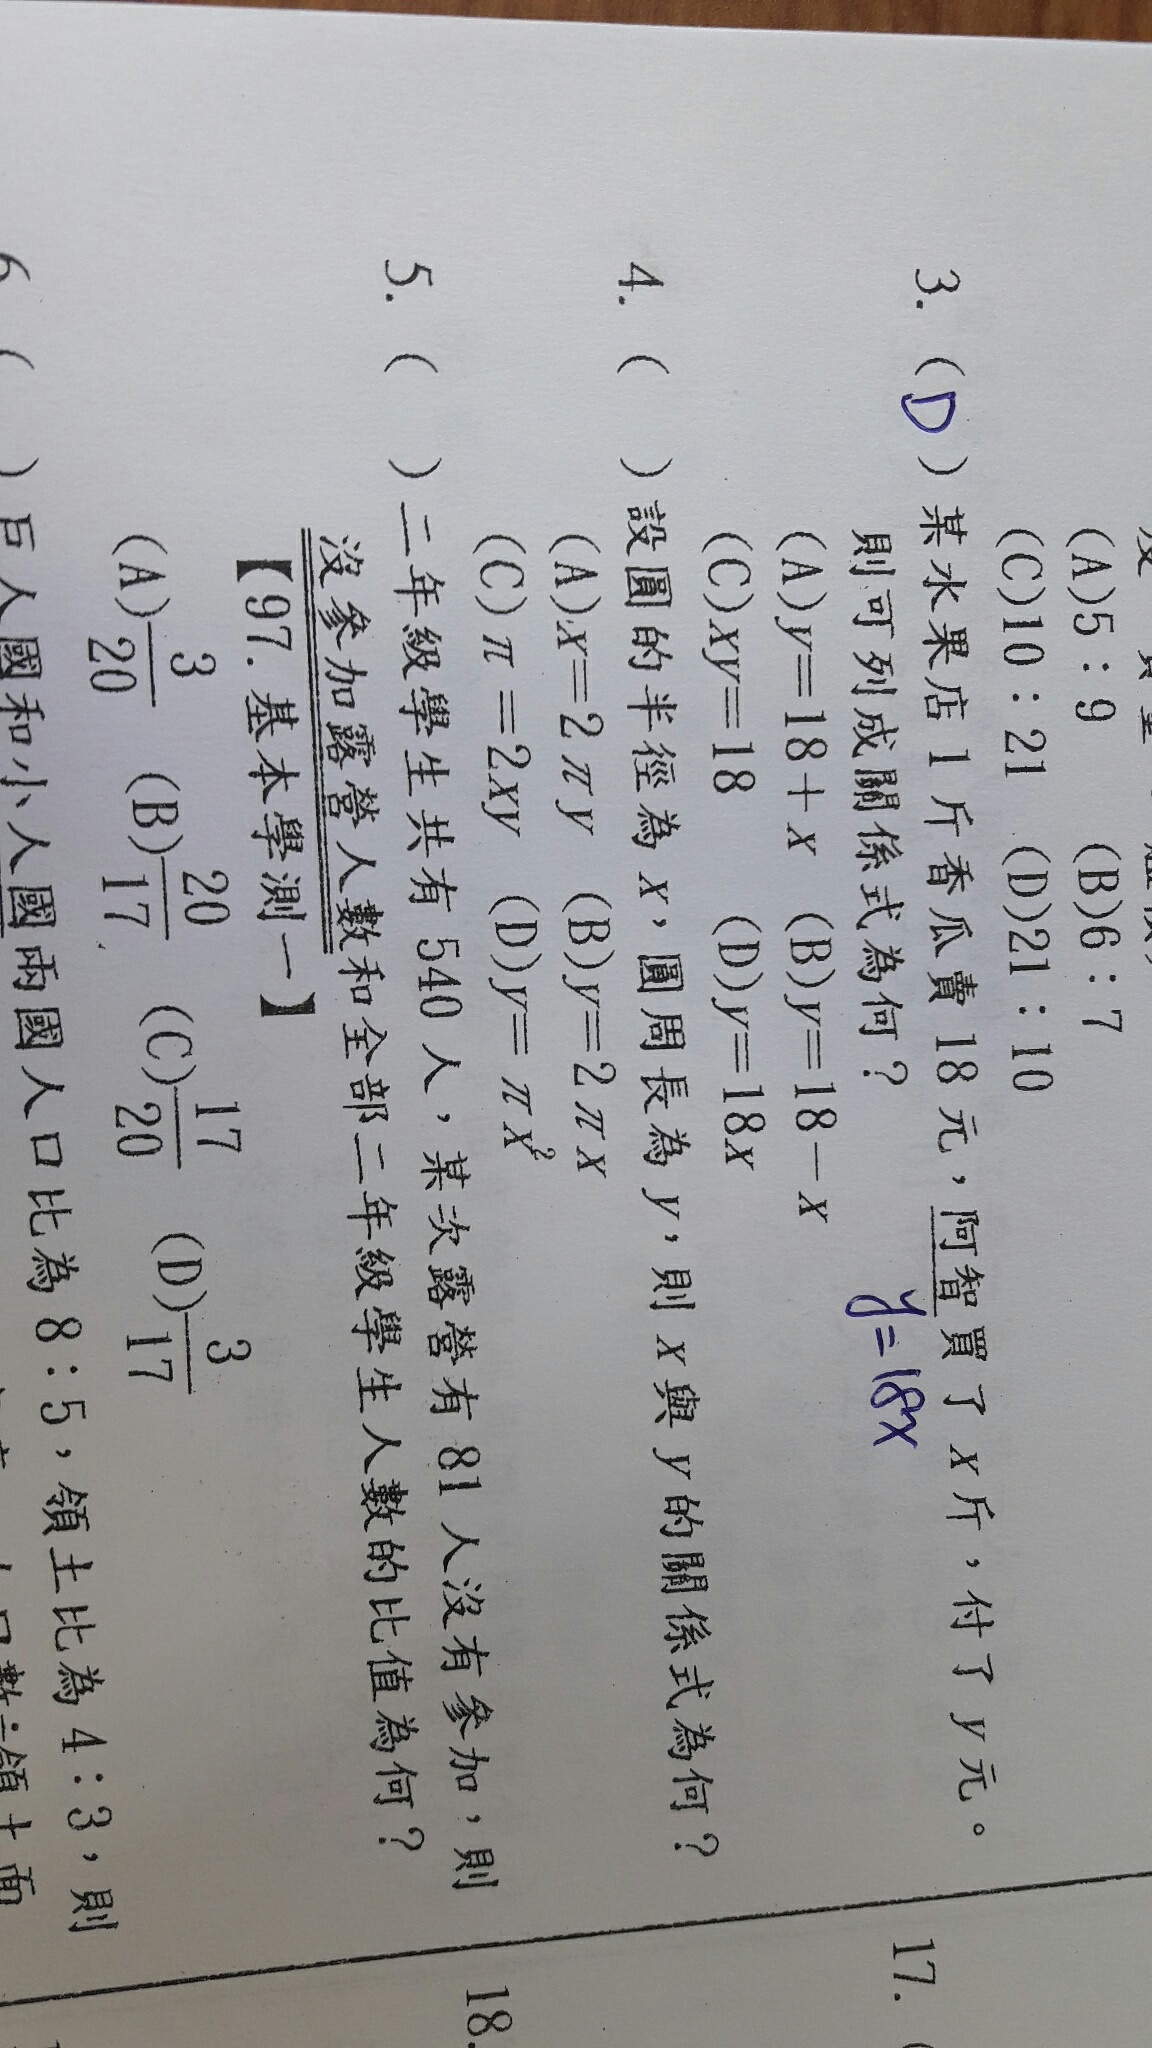 (A)5：9　(B)6：7
(C)10：21　(D)21：10
3. (D)某水果店1斤香瓜賣18元，阿智買了x斤，付了y元。
則可列成關係式為何？ y=18x
(A)y=18+x　(B)y=18－x
(C)xy=18　(D)y=18x
4. ( )設圓的半徑為x，圓周長為y，則x與y的關係式為何？
(A)x=2πy　(B)y=2πx
(C)π=2xy　(D)y=πx²
5. ( )二年級學生共有540人，某次露營有81人沒有參加，則
沒參加露營人數和全部二年級學生人數的比值為何？
【97.基本學測一】
(A)3/20　(B)20/17　(C)17/20　(D)3/17
6. ( )巨人國和小人國兩國人口比為8：5，領土比為4：3，則
17.
18.